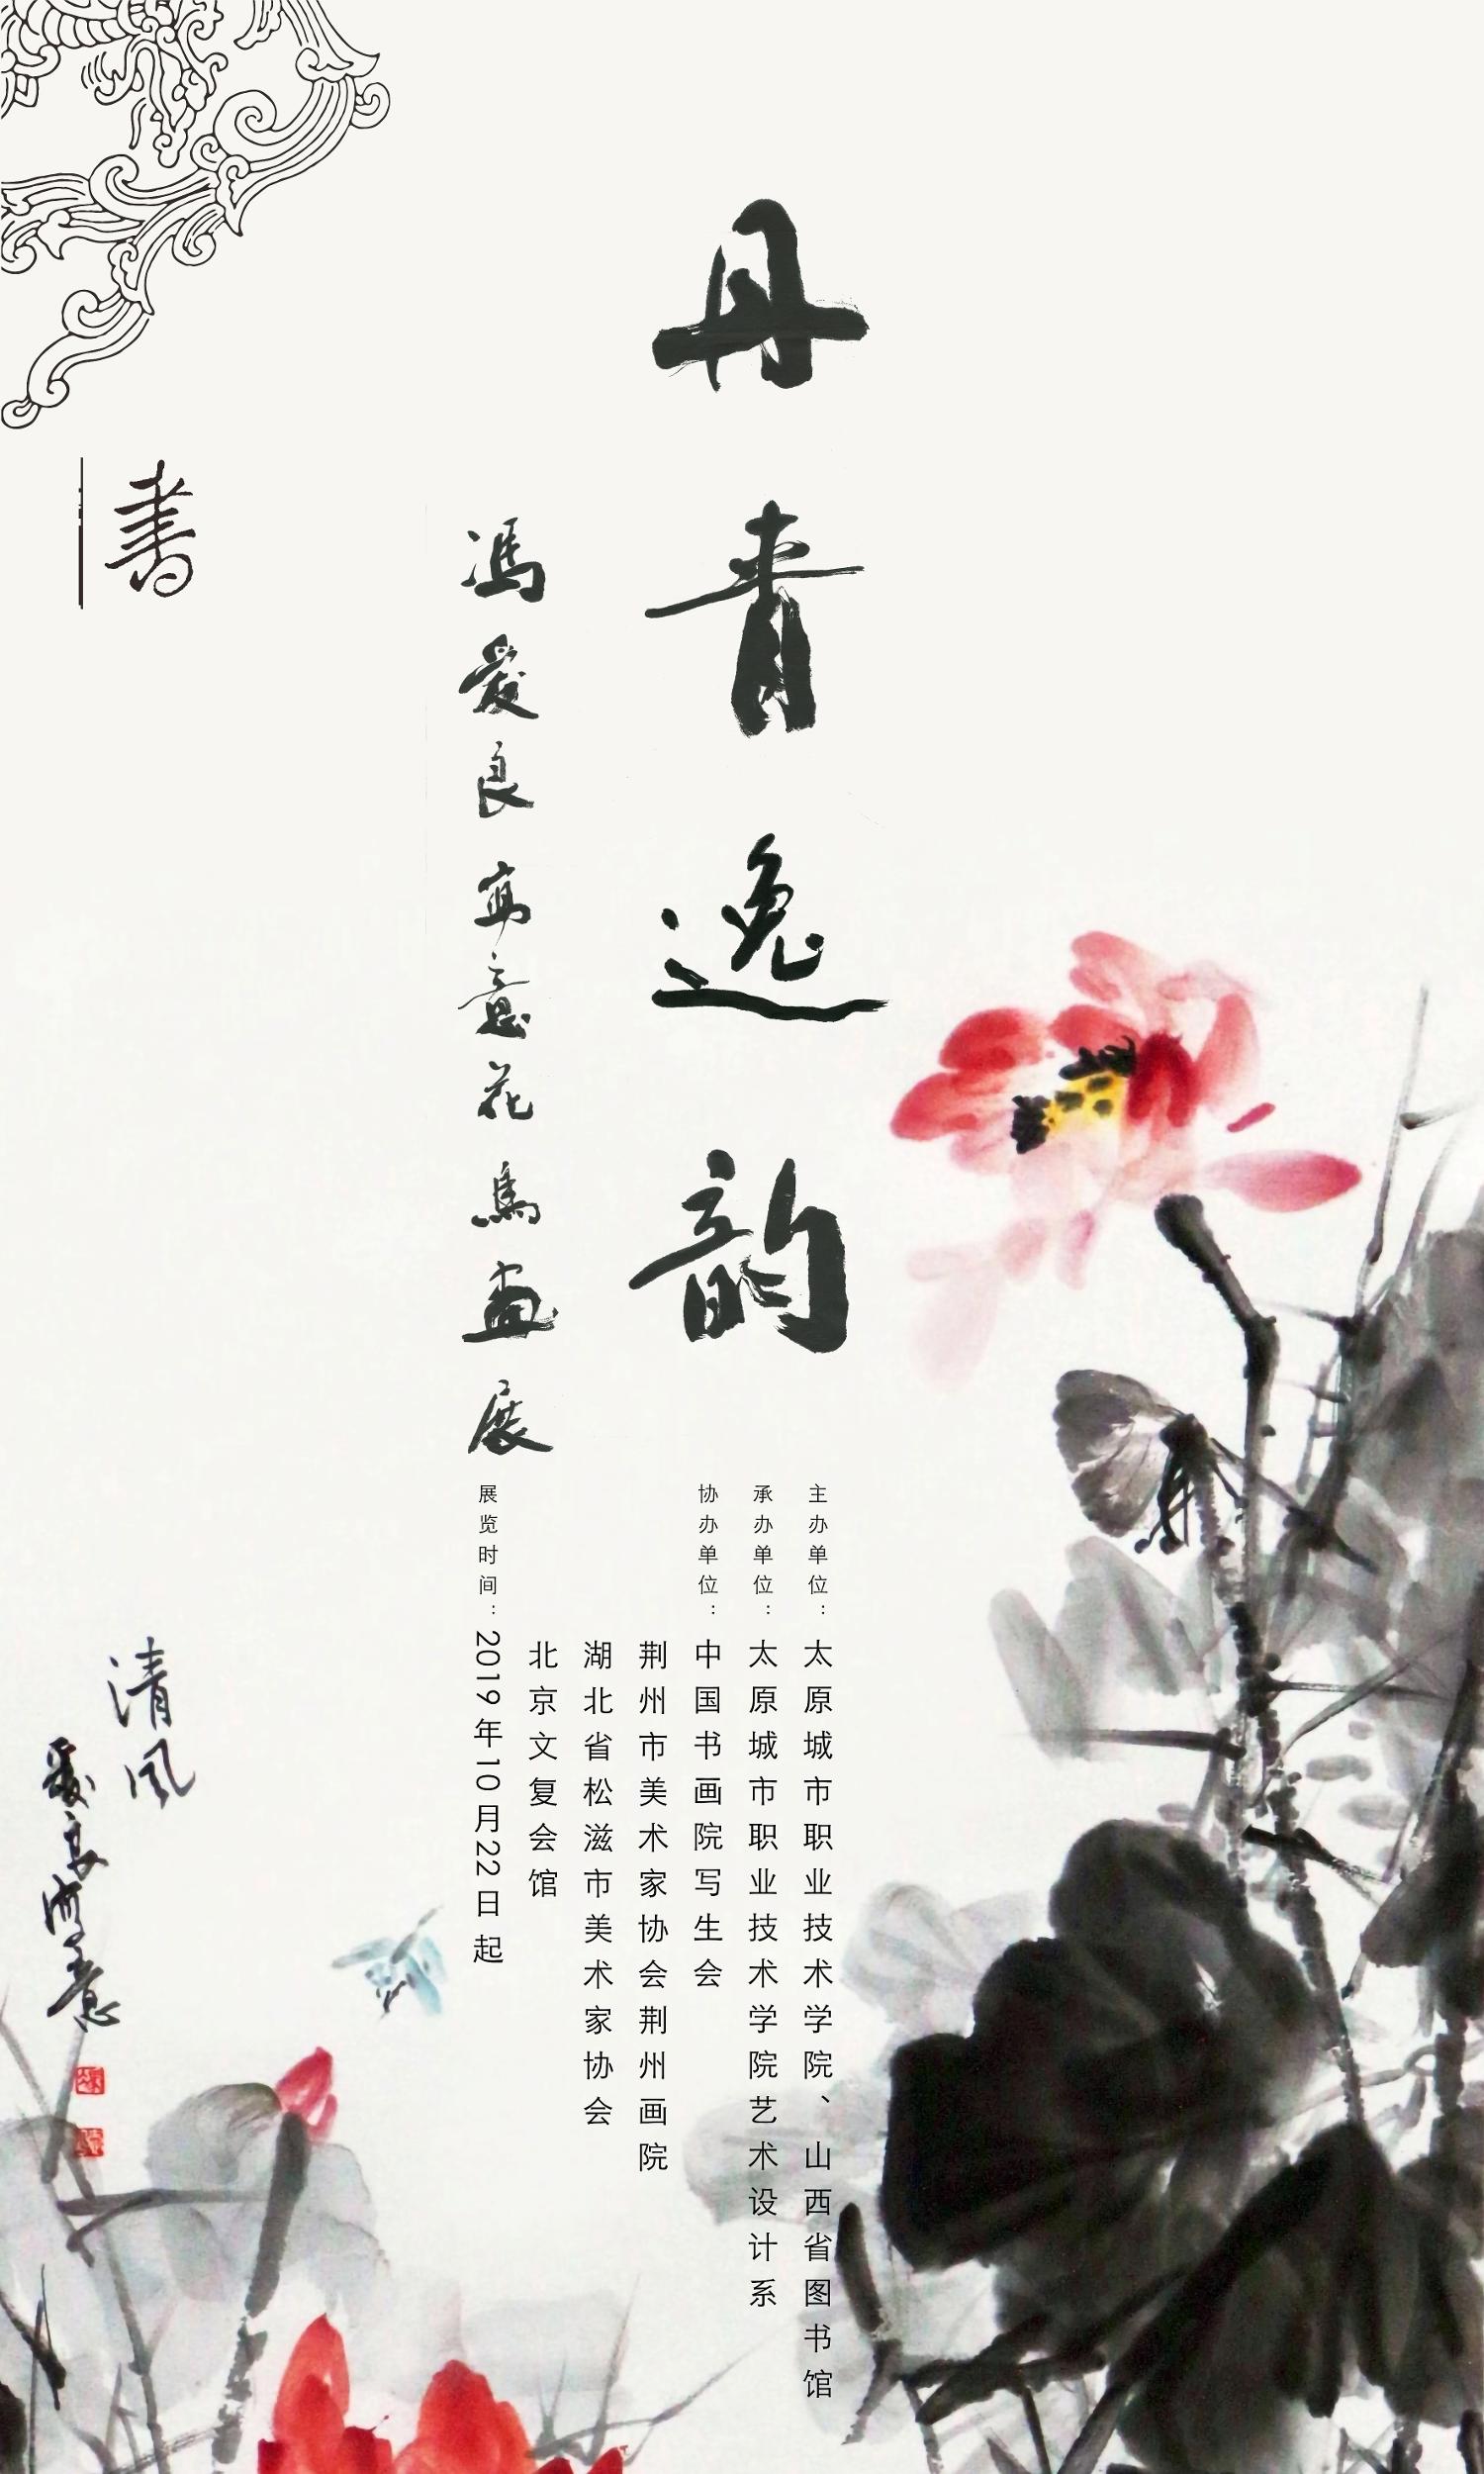 丹青逸韵
冯爱良写意花鸟画展
主办单位：太原城市职业技术学院、山西省图书馆
承办单位：太原城市职业技术学院艺术设计系
协办单位：中国书画院写生会
荆州市美术家协会荆州画院
湖北省松滋市美术家协会
北京文复会馆
展览时间：2019年10月22日起
書
清风
爱良写意